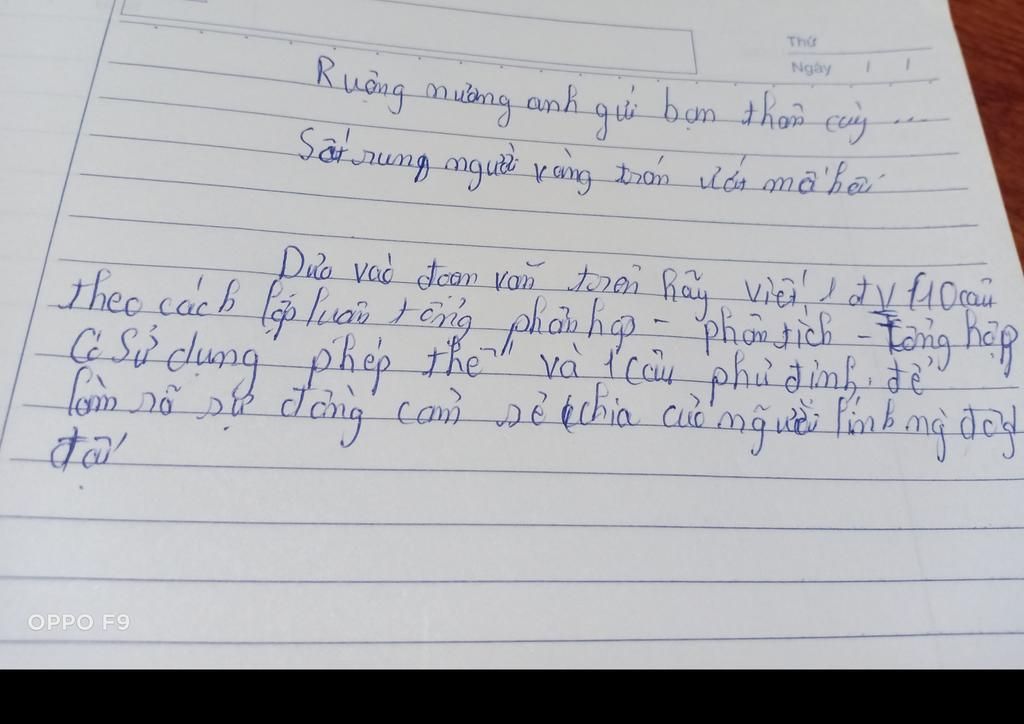 Thứ
Ngày / /
Ruộng nương anh gửi bạn thân cày ....
Sốt rung người vầng trán ướt mồ hôi
Dựa vào đoạn văn trên hãy viết 1 đv 10 câu
theo cách lập luận tổng phân hợp - phân tích - tổng hợp
Có sử dụng phép thế " và 1 câu phủ định. để
làm rõ sự đồng cảm sẻ chia của người lính
đội
OPPO F9